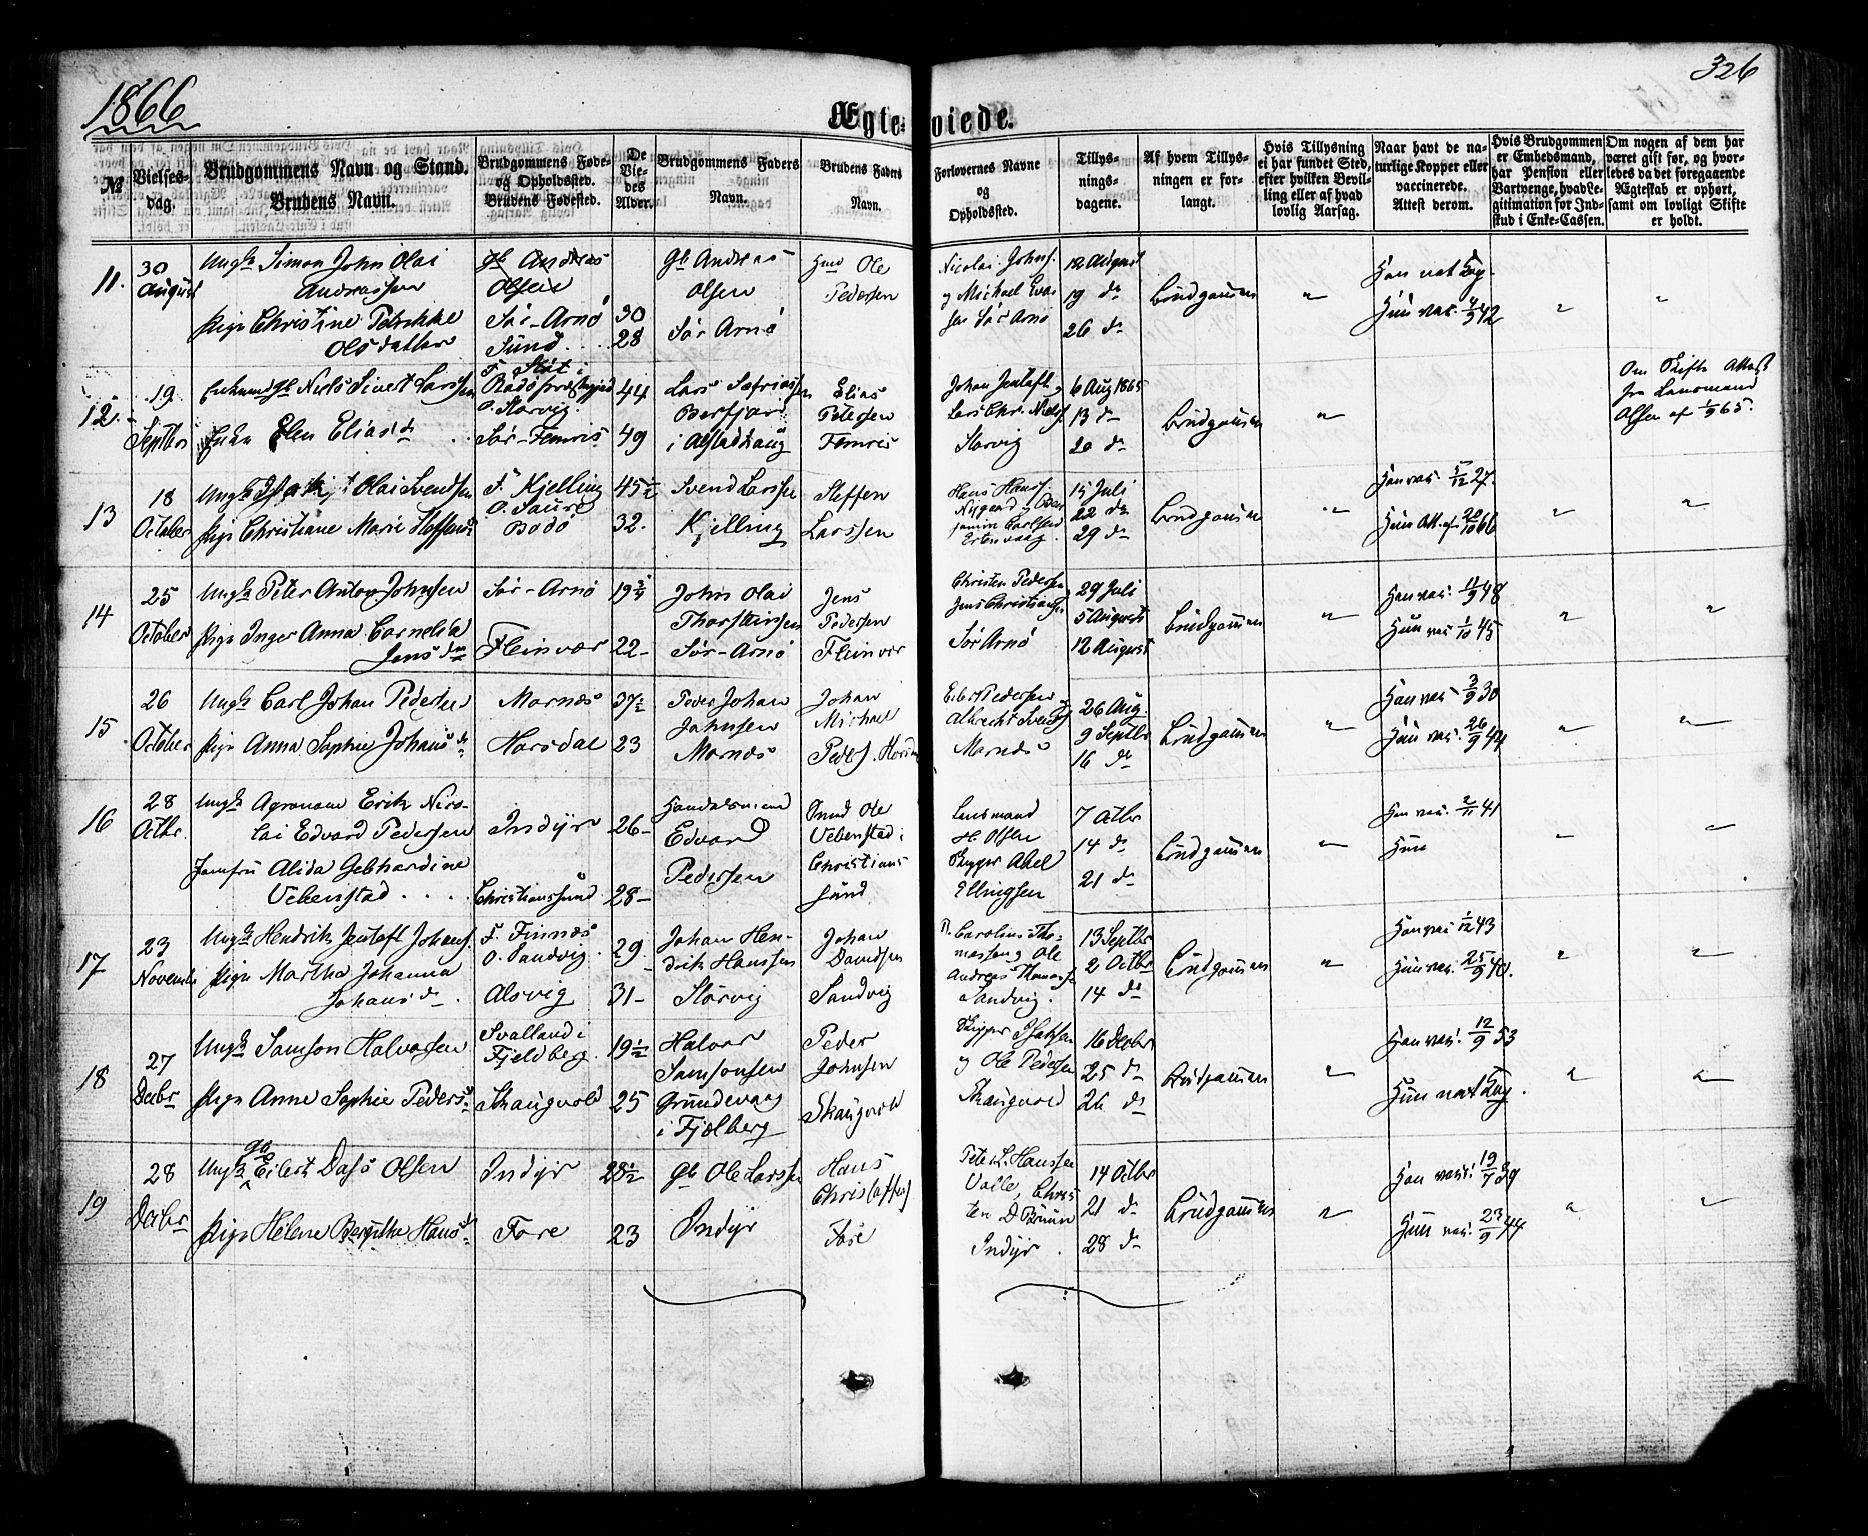 1866
326
Ægte=viede.
№
Vielses-dag.
Brudgommens Navn og Stand.
Brudens Navn.
Brudgommens Føde-
og Opholdssted.
Brudens Fødested.
De Vie-des Alder.
Brudgommens Faders
Navn.
Brudens Faders
Navn.
Forlovernes Navne
og
Opholdssted.
Tillys-
nings-
dagene.
Af hvem Tillys-
ningen er for-
langt.
Hvis Tillysning
ei har fundet Sted,
efter hvilken Bevil-
ling eller af hvad
lovlig Aarsag.
Naar havt de na-
turlige Kopper eller
vaccinerede.
Attest derom.
Hvis Brudgommen
er Embedsmand,
har Pension eller
Vartpenge, hvad Le-
gitimation for Ind-
skud i Enke-Cassen.
Om nogen af dem har
været gift før, og hvor-
ledes da det foregaaende
Ægteskab er ophørt,
samt om lovligt Skifte
er holdt.
11.
30
August
Ungk Simon John Olai
Andreassen
Pige Christine Petrikke
Olsdatter
Gb Andreas
Olsen
Sør-Arnø
Sund
30
28
Gb Andreas
Olsen
Sør Arnø
Ole
Pedersen
Nicolai Johns.
og Michael
Sør Arnø
12 August
19 do
26 do
Brudgommen
"
Hun vac. 4/9 42
"
"
12.
19
Septbr
Enkemand Gb Niels Sivert Larssen
Enke Elen Eliasd
O. Storvig
Sør-Femris
44
49
Lars
i Alstadhaug
Elias
Petersen
Femris
Johan Jentoft
Lars Chr. Niels.
Storvig
6 Aug 1865
13 do
20 do
Brudgommen
"
Om Skifte Attest
fra Lensmand
Olsen af 1/9 65.
13
18
October
Ungk Olai Svendsen
Pige Christiane Marie Steffensd
F. Kjelling
O. Saura
Bodø
45 1/2
32.
Svend Larssen
Kjelling
Steffen
Larssen
Hans Hans.
Nygaard
15 Juli
22 do
29 do
Brudgommen
"
Han vac. 5/12 27.
Hun Att. af 20/10 66
"
"
14
25
October
Ungk Peter Anton Johnsen
Pige Inger Anna Cornelia
Jensdr
Sør-Arnø
Fleinvær
19 3/4
22-
John Olai
Thorsteinsen
Sør-Arnø
Jens
Pedersen
Fleinvær
Christen Pedersen
Jens Christiansen
Sør Arnø
29 Juli
5 August
12 August
Brudgommen
"
Han vac. 11/9 48
Hun vac. 1/10 45
"
"
15
26
October
Ungk Carl Johan Pedersen
Pige Anna Sophie Johansdr
Mornæs
Horsdal
37 1/2
23
Peder Johan
Johnsen
Mornæs
Johan
Michael
Peders. Horsd
Eilert Pedersen
Albrecht
Mornæs
26 Aug.
9 Septbr
16 do
Brudgommen
"
Han vac. 3/9 30
Hun vac. 26/9 44
"
"
16
28
Octbr.
Ungk Agronom Erik Nico-
lai Edvard Pedersen
Jomfru Alida Gebhardine
Uebenstad
Indyr
Christianssund
26-
28-
Handelsmand
Edvard
Pedersen
Ole
Uebenstad i
Christians
sund
Lensmand
H. Olsen
Skipper Abel
Ellingsen
7 Octbr
14 do
21 do
Brudgommen
"
Han vac. 2/11 41
Hun
"
"
17
23
November
Ungk Hendrik Jentoft Johans.
Pige Martha Johanna
Johansd
F. Finnæs
O. Sandvig
Alsvig
29
31-
Johan Hen-
drik Hanssen
Storvig
Johan
Davidsen
Sandvig
Carolius Tho-
massen og Ole
Andreas Thomass
Sandvig.
13 Septbr
2 Octbr
14 do
Brudgommen
"
Han vac 1/12 43
Hun vac. 25/9 40.
"
"
18
27
Decbr
Ungk Samson Halvorsen
Pige Anne Sophie Pedersd
Svalland i
Fjeldberg
Skaugvold
19 1/2
25
Halvor
Samsonsen
Grundevaag
i Fjelberg
Peder
Johnsen
Skaugvold
Skipper Isaksen
og Ole Pedersen
Skaugvold
16 Decbr
25 do
26 do
Brudgommen
"
Han vac. 12/9 53
Hun nat Kop.
"
"
19
28
Decbr
Ungk Gb Eilert Dass Olsen
Pige Helene Bergitha Hansd
Indyr
Fore
28 1/2
23
Gb Ole Larssen
Indyr
Hans
Christoffers
Fore
Peter L. Hanssen
Valle, Chris
ten D Bruun
Indyr.
14 Octbr
21 do
28 do
Brudgommen
"
Han vac. 19/7 39
Hun vac. 23/9 44
"
"